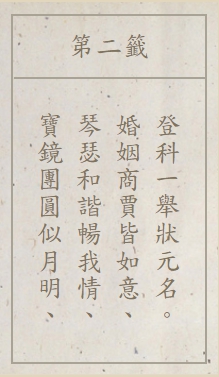 第二籤
寶鏡團圓似月明、
琴瑟和諧暢我情、
婚姻商賈皆如意、
登科一舉狀元名。